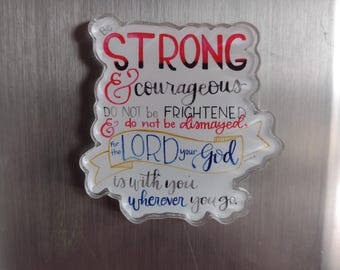 Be
STRONG
& courageous
DO NOT be FRIGHTENED
& do not be dismayed,
for the LORD your God
is with you
wherever you go.